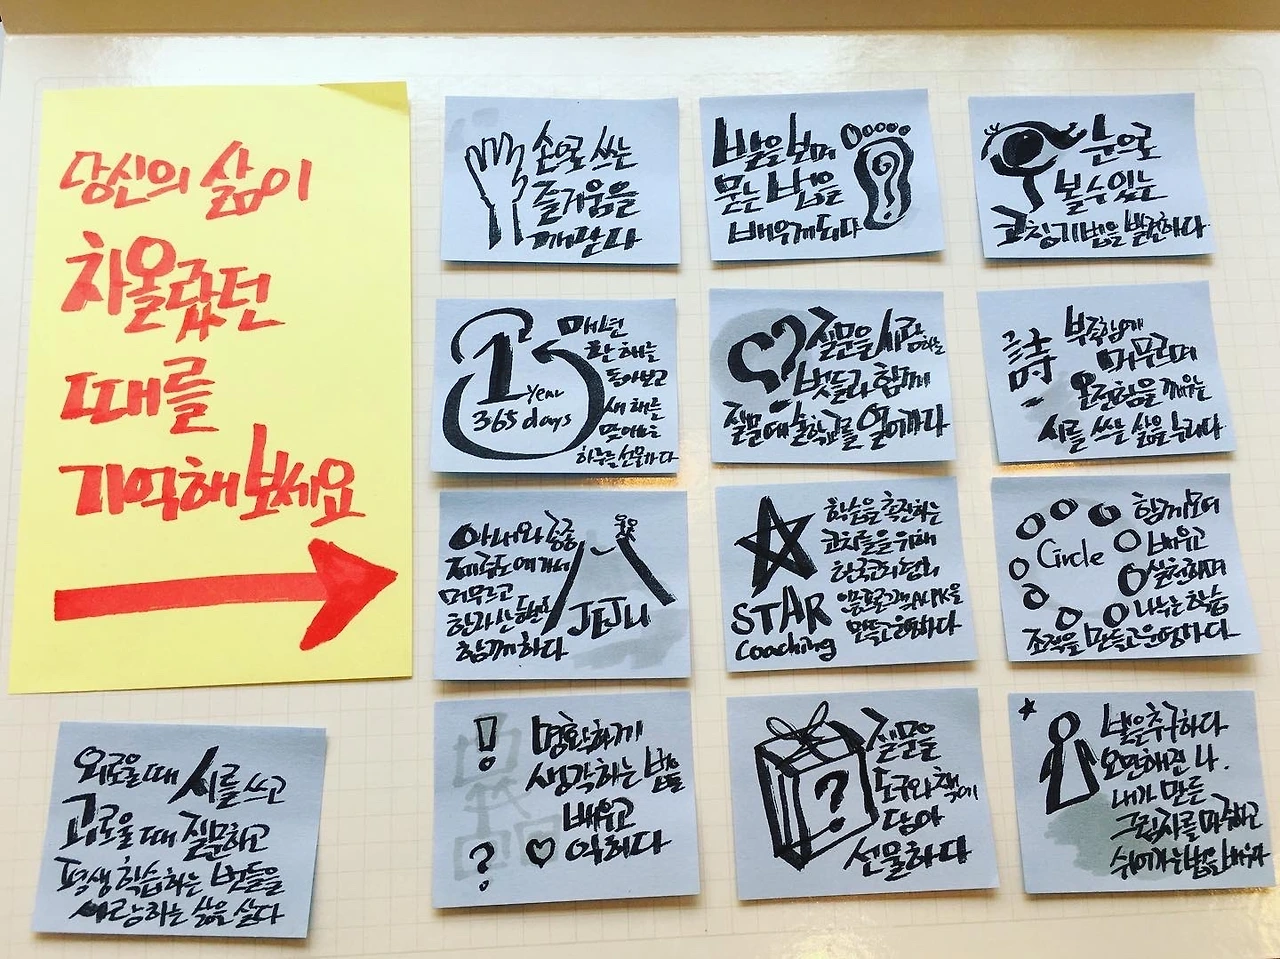 당신의 삶이
차올랐던
때를
기억해보세요
손으로 쓰는
즐거움을
깨닫다
발을 보며
묻는 법을
배우게되다
눈으로
볼 수 있는
코칭기법을 발견하다
1
Year
365 days
매년
한 해를
돌아보고
새 해를
맞이하는
하루를 선물하다
질문을 사랑하는
벗들과 함께
질문예술학교를 열어가다
詩
부족함에
머무르며
온전함을 깨우는
시를 쓰는 삶을 누리다
아내와 종종
제주도에 가서
머무르고
한라산 등반도
함께하다
JEJU
STAR
Coaching
학습을 촉진하는
코치들을 위해
한국코치협회
인증프로그램 ALPK을
만들고 운영하다
Circle
함께모여
배우고
실천하며
나누는 학습
조직을 만들고 운영하다
외로울 때 시를 쓰고
괴로울 때 질문하고
평생 학습하는 벗들을
사랑하는 삶을 살다
!
?
명확하게
생각하는 법을
배우고
익히다
?
질문을
도구와 책에
담아
선물하다
밝음추구하다
오면해진 나.
내가 만든
그림자를 마주하고
쉬어가는 법을 배우다